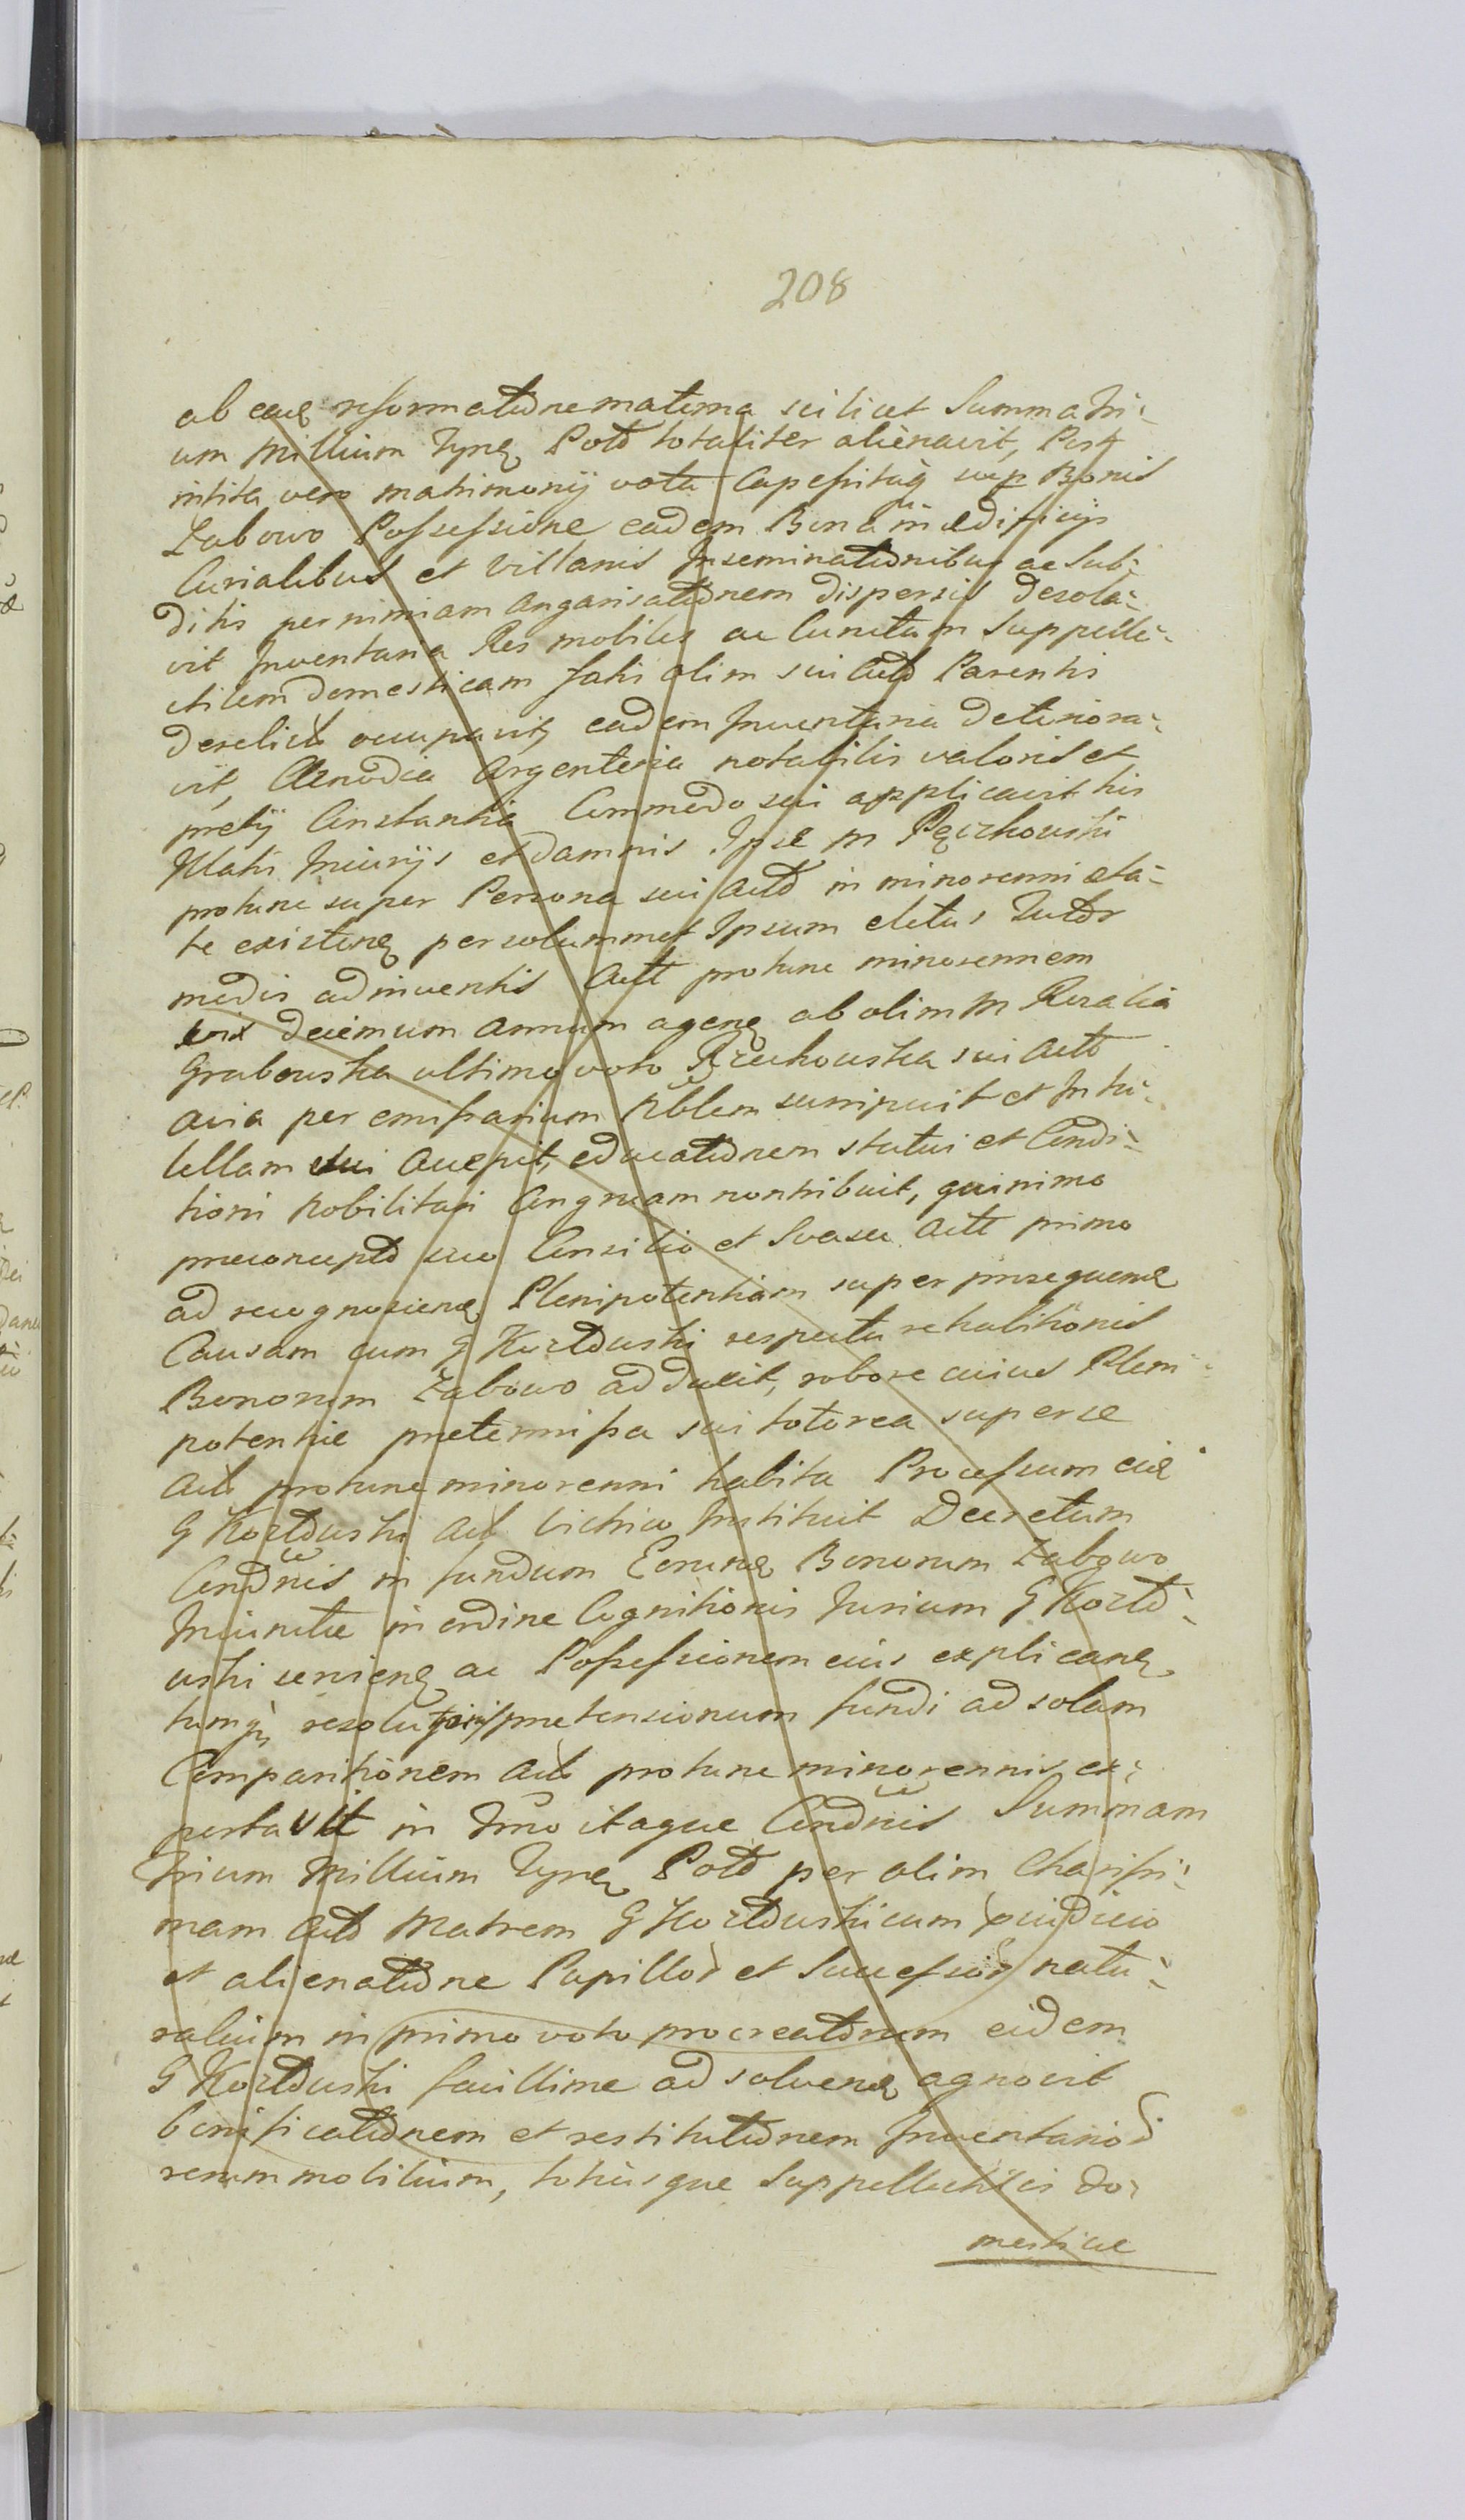 208
ab eaq reformatione materna scilicet Summa tri-
um Millium Tynq Poło totaliter alienavit, Post
intita vero matrimonij vota Capessitaq sup Bonis
Łabowo Possessione eadem Bona in ædificijs
Curialibus et Villanis Inseminationibus ac Sub-
ditis per nimiam angarisationem dispersis desola-
vit Inventana Res mobiles ac Cunctam Suppelle-
ctilem domesticam fatis olim sui Acto Parentis
derelict occupavit, eadem Inventaria deteriora-
vit, Clenodia Argenteria notabilis valoris et
pretij Constantia Commodo sui applicavit his
Illatis Iniurijs et damnis Ipse M Pęczkowski
protunc super Persona sui Acto in minorenni æta-
te existenq persolummet Ipsum eletus Tutor
modis adinventis Actt protunc minorennem
vix decimum annum agenq ab olim M Rozalia
Grabowska ultimo voto Pęczkowska sui Acto
avia per emissarium Nblem surripuit et In tu-
tellam sui Accepit, educationem statui et Condi-
tioni Nobilitari Congruam non tribuit, quinimo
præconcepto suo Consilio et Svasu Actt primo
ad recognoscenq Plenipotentiam super prosequenq
Causam cum G Kozłowski respectu rehabitionis
Bonorum Łabowo adduxit, robore cuius Pleni-
potentiæ prætermissa sui totorea superse
Acto protunc minorenni habita Processum cuiq
G Kozłowski Act victrice Instituit Decretum
Condnis in fundum Eorunq Bonorum Łabowo
Iniunctæ in ordine Cognitionis Iurium G Kozło-
wski servienq ac Possessionem eius explicanq
tumq resolutionis prætensionum fundi ad solam
Comparitionem Acto protunc minorennis ex-
portavit in Tmo itaque Condnis Summam
trium Millium Tynq Poło per olim Charissi-
mam Acto Matrem G Kozłowski cum præiudicio
et alienatione Pupillor et Successor natu-
ralium in primo voto procreatorum eidem
G Kozłowski facillime ad solvenq agnovit
bonificationem et restitutionem Inventarior
rerum mobilium, totiusque Suppellectilis do-
mesticæ